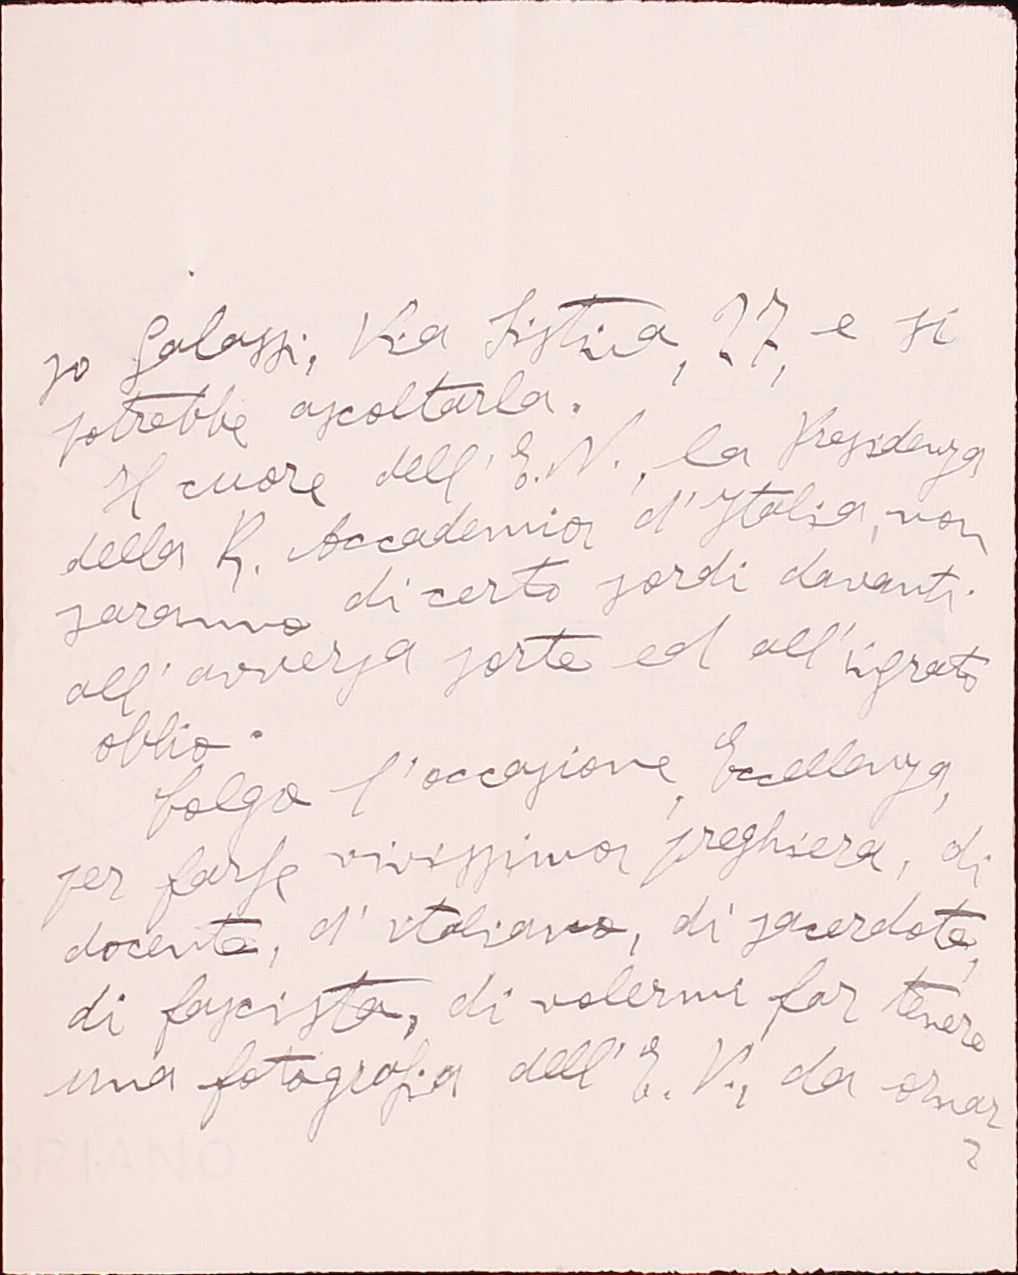 so Galassi, Via Sistina, 27, e si
potrebbe ascoltarla.
Il cuore dell'E.V., la Presidenza
della R. Accademia d'Italia, non
saranno di certo sordi davanti
all'avversa sorte ed all'ingrato
oblio.
Colgo l'occasione, Eccellenza,
per farle vivissima preghiera, di
docente, d'italiano, di sacerdote,
di fascista, di volermi far tenere
una fotografia dell'E.V., da ornar
BRIANO